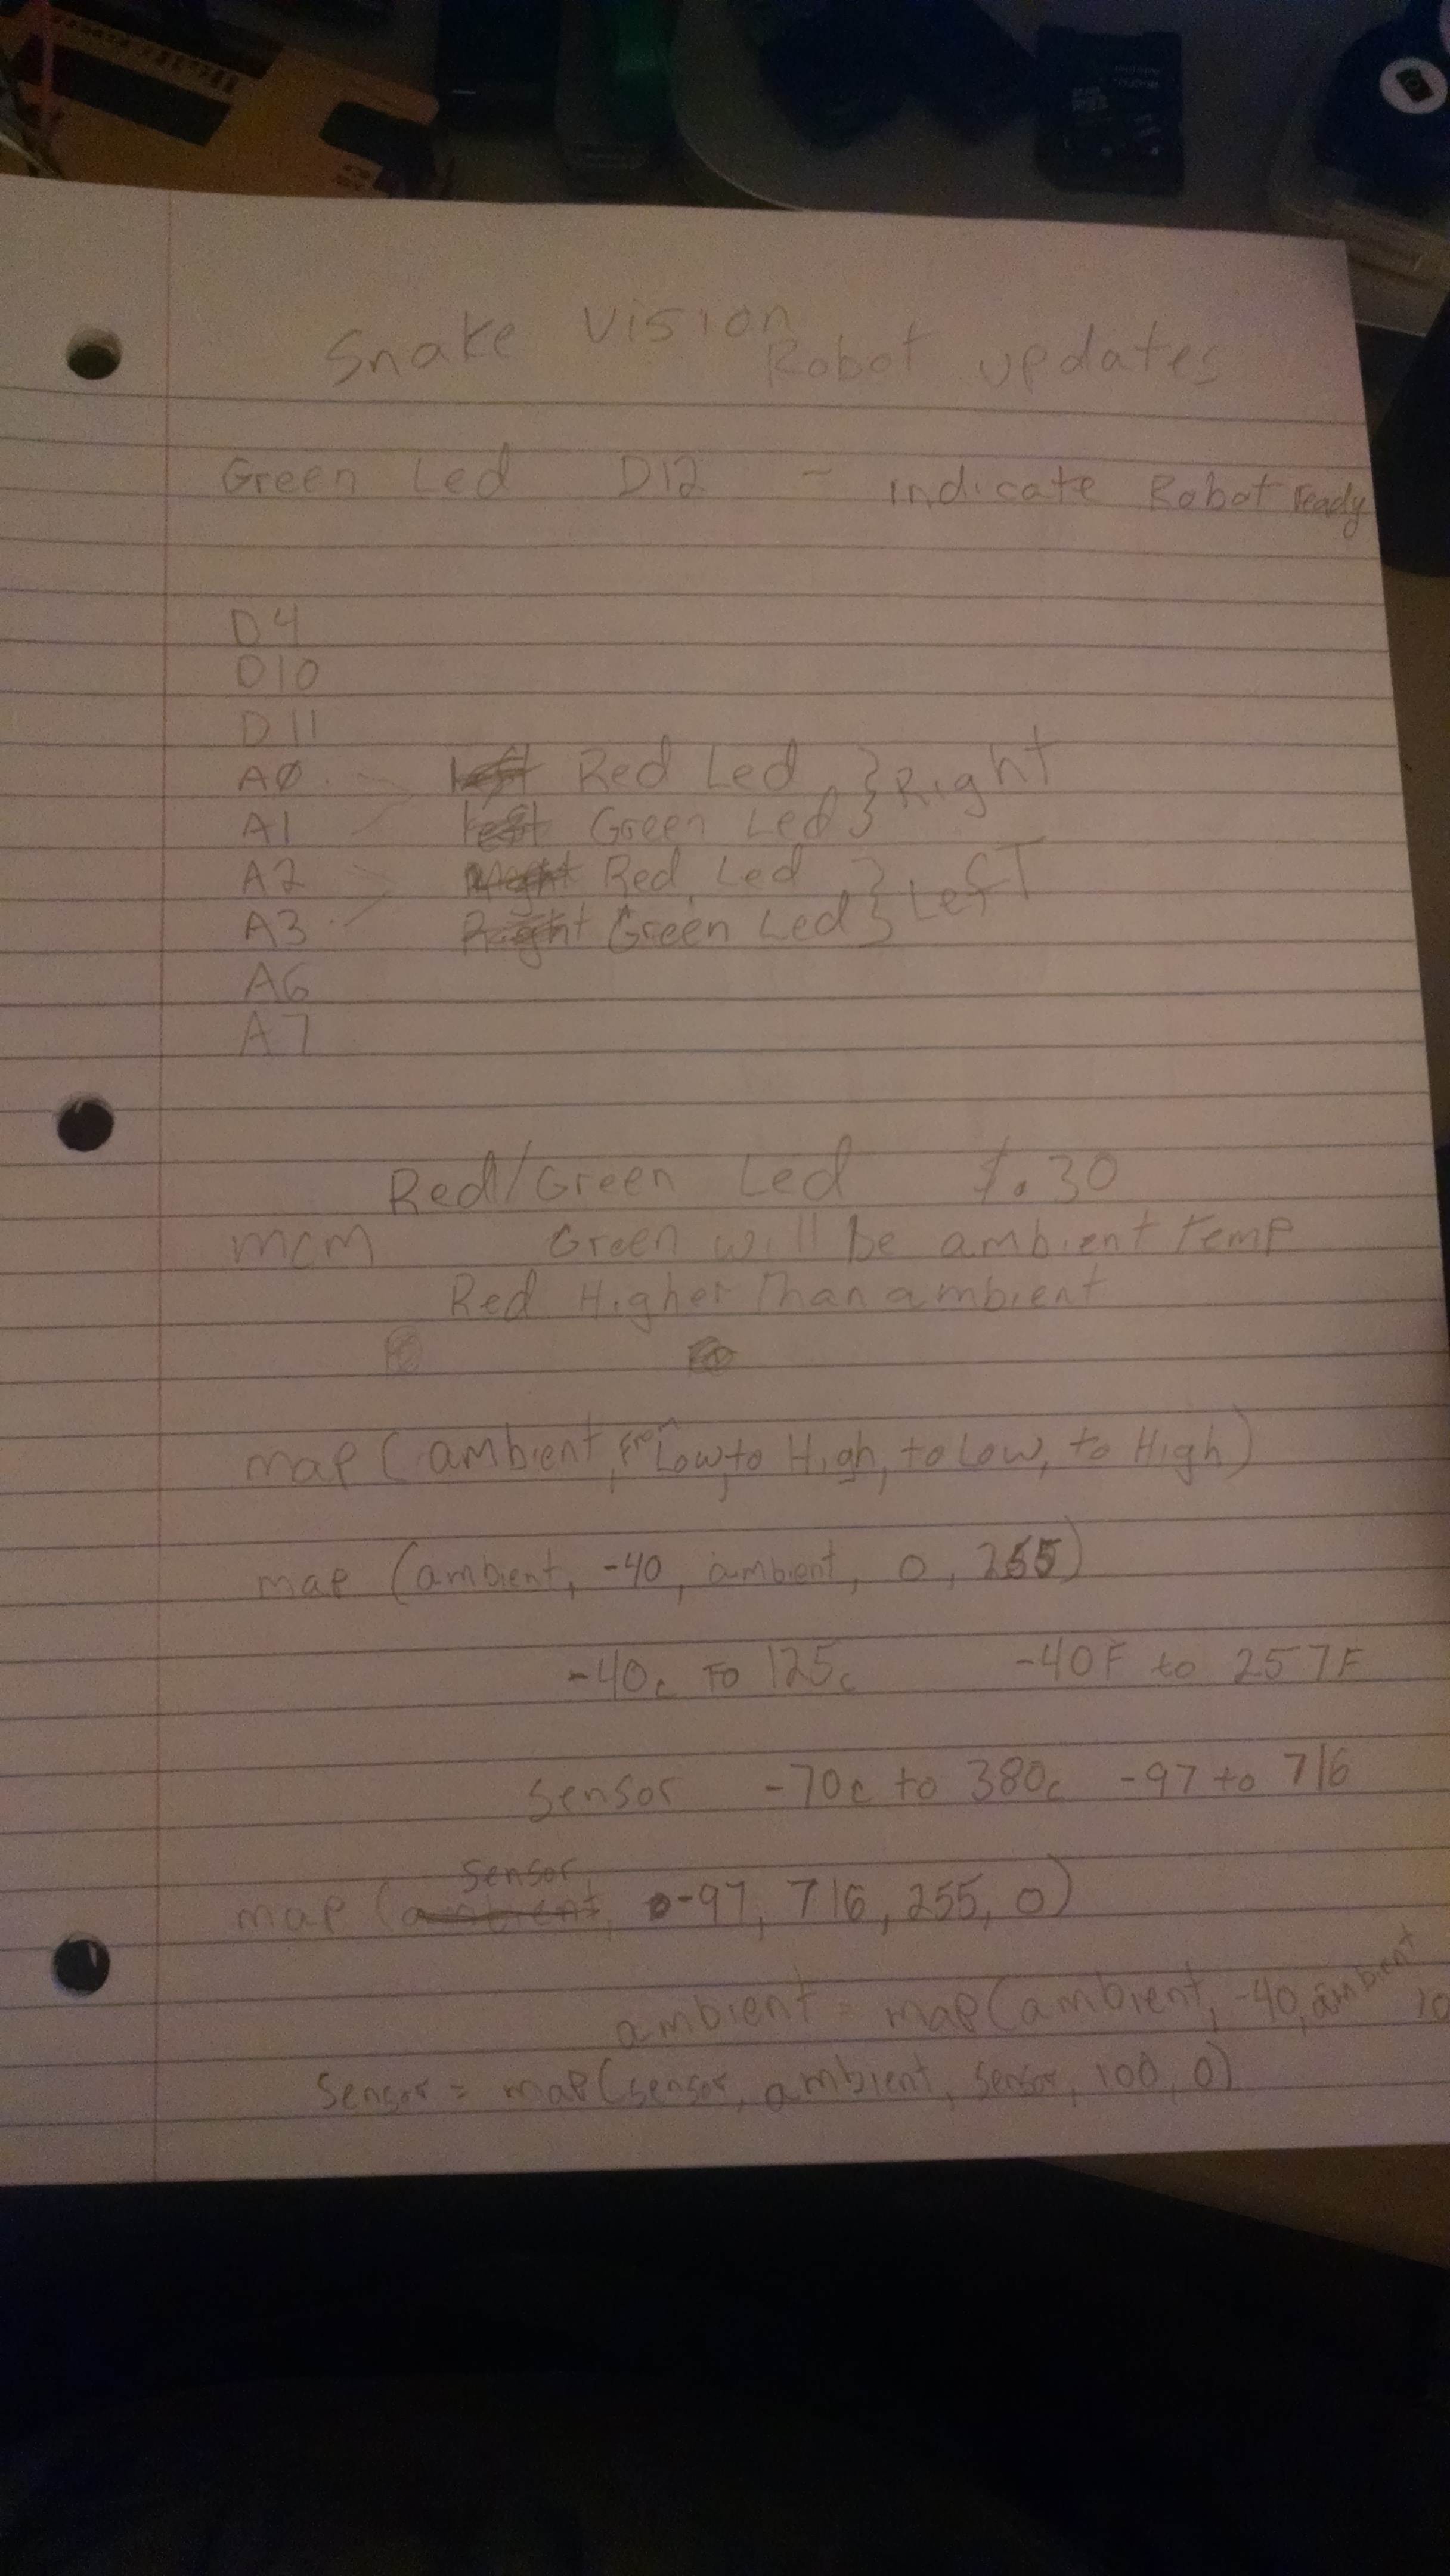 Snake Vision Robot updates
Green Led D12 - indicate Robot ready
D4
D10
D11
A0 Left Red Led } Right
A1 Left Green Led
A2 Right Red Led } Left
A3 Right Green Led
A6
A7
Red/Green Led $.30
mcm Green will be ambient temp
Red Higher Than ambient
map (ambient, From Low, to High, to Low, to High)
map (ambient, -40, ambient, 0, 255)
-40c To 125c -40F to 257F
Sensor -70c to 380c -97 to 716
sensor,
map (ambient, -97, 716, 255, 0)
ambient = map(ambient, -40, ambient 10
Sensor = map(sensor, ambient, sensor, 100, 0)